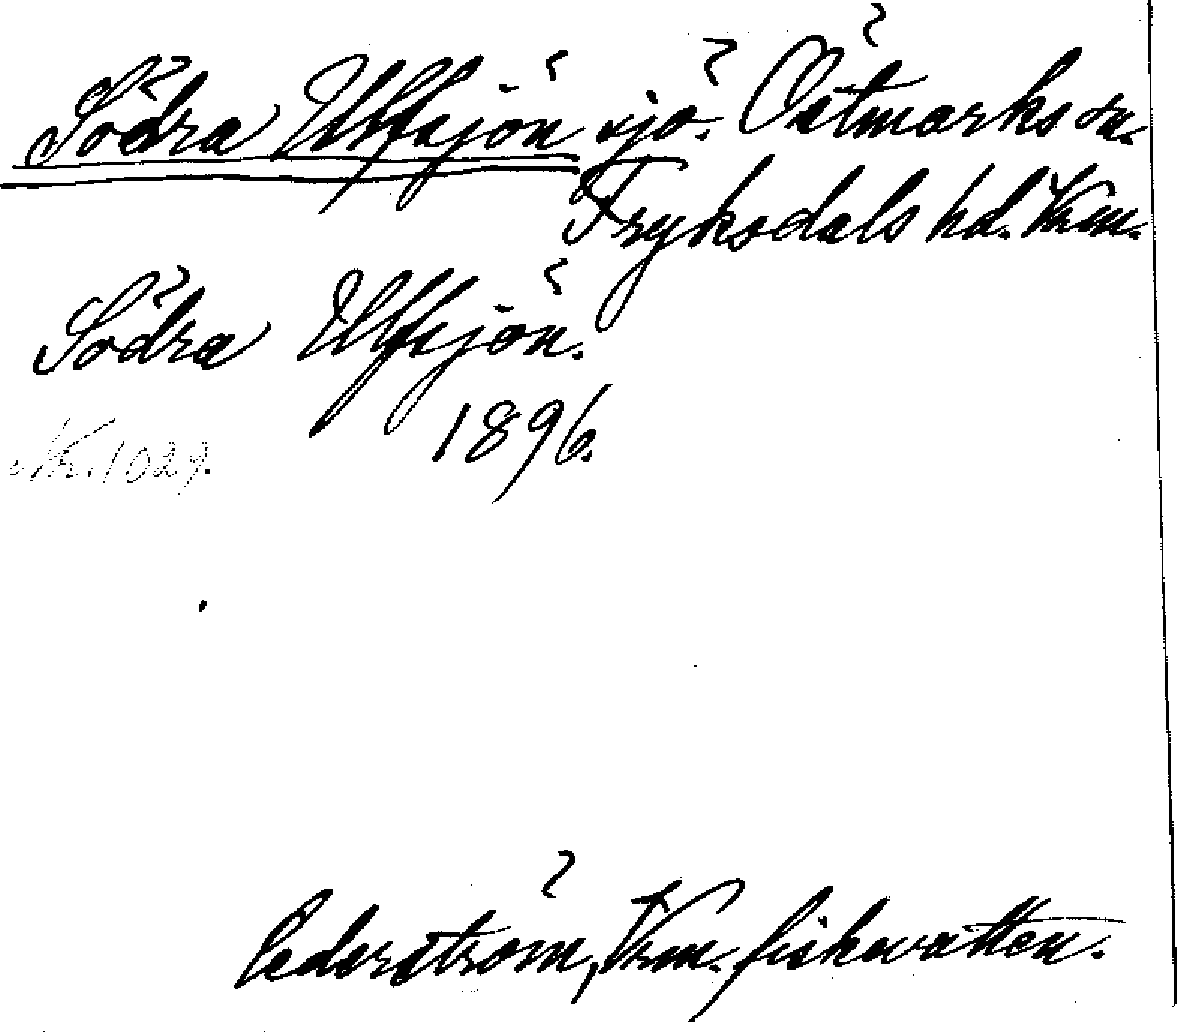 Södra Ulfsjön sjö. Östmarks sn.
Fryksdals hd. Vrm.
Södra Ulfsjön.
1896.
Nr. 1029.
Cederström, Vrm. fiskevatten.